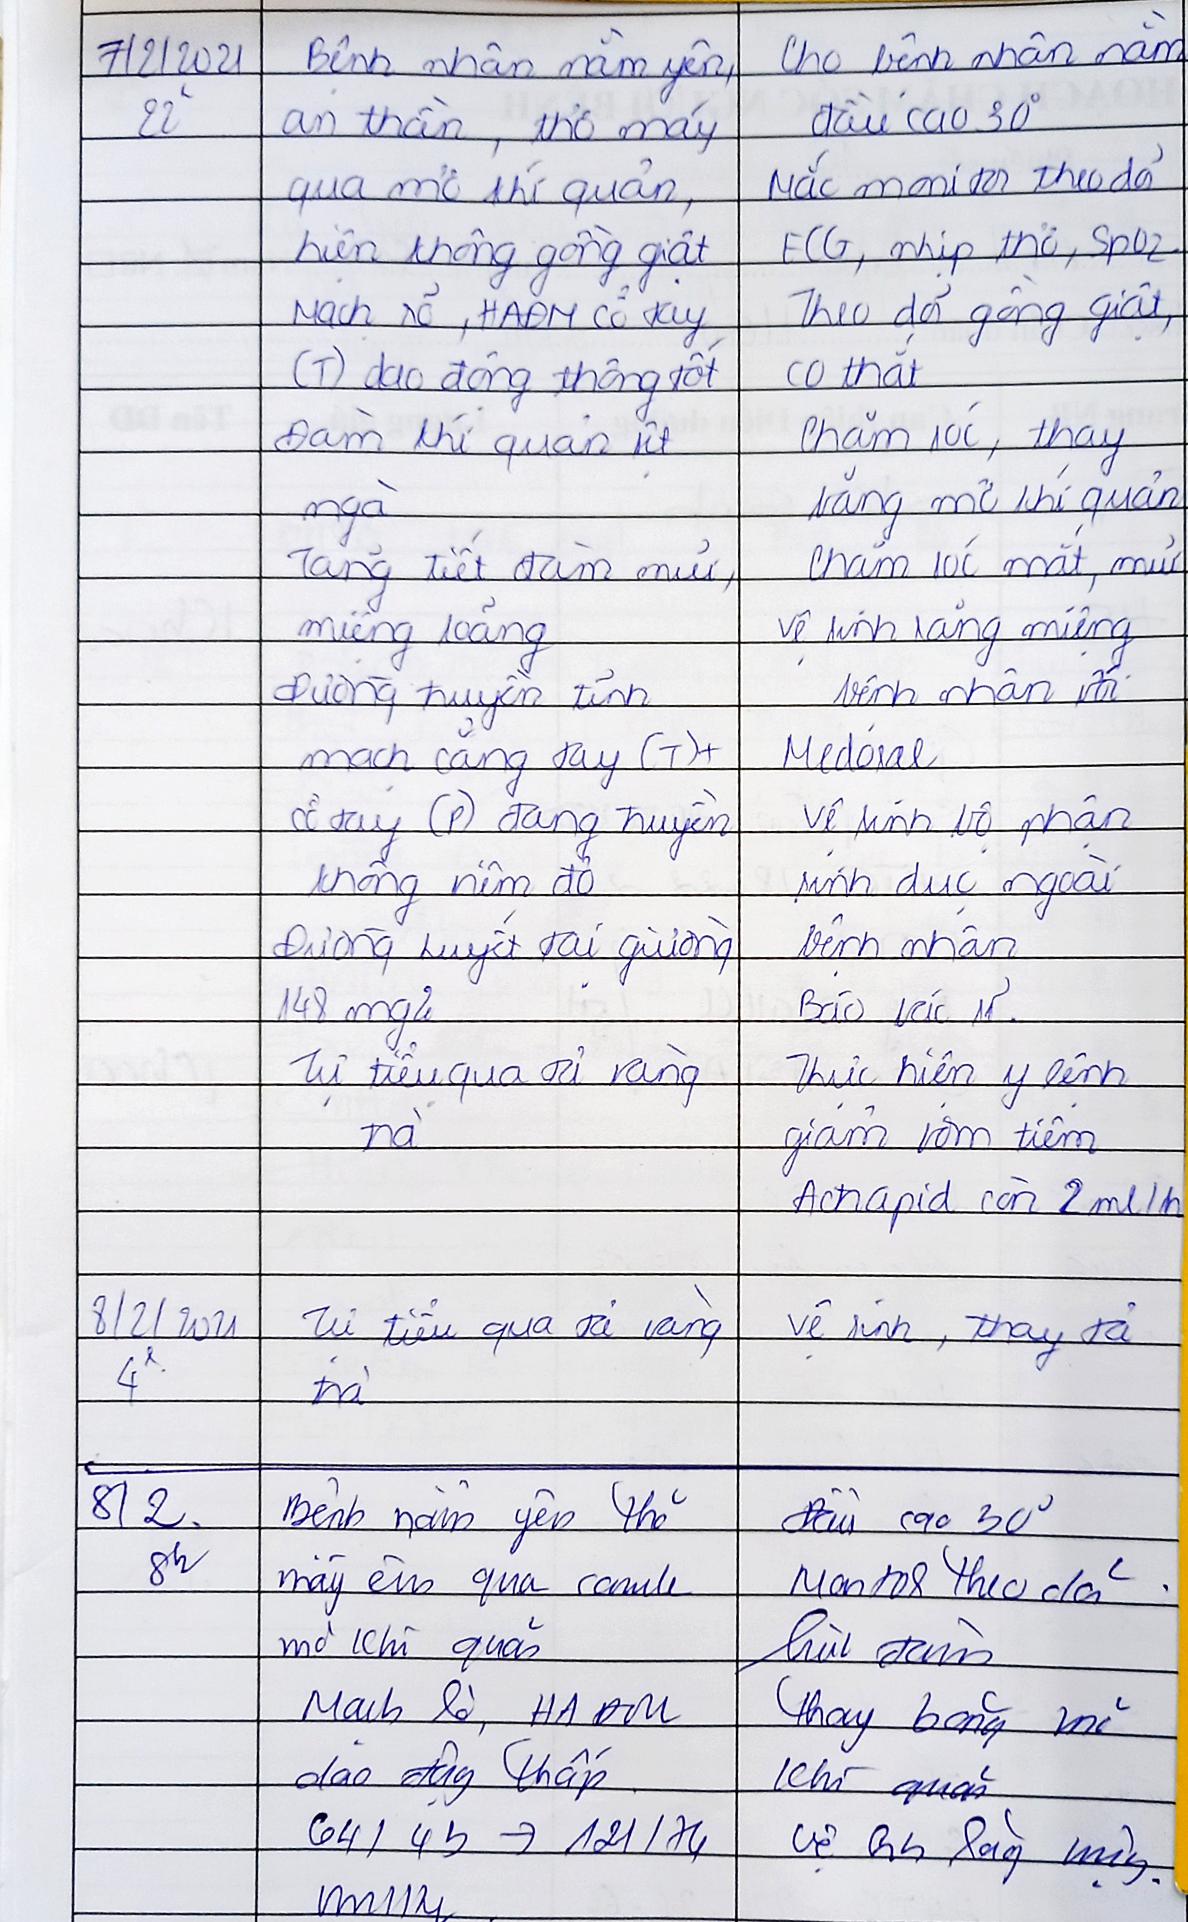 7/2/2021
22h
Bệnh nhân nằm yên,
an thần, thở máy
qua mở khí quản,
hiện không gồng giật
Mạch rõ, HAĐM cổ tay
(T) dao động thông tốt
Đàm khí quản ít
ngà
Tăng tiết đàm mũi,
miệng loãng
Đường truyền tĩnh
mạch cẳng tay (T)+
cổ tay (P) đang truyền
không nề đỏ
Đường huyết tại giường
148 mg%
Tự tiểu qua tã vàng
trà
Cho bệnh nhân nằm
đầu cao 30°
Mắc monitor theo dõi
ECG, nhịp thở, SpO2.
Theo dõi gồng giật,
co thắt
Chăm sóc, thay
băng mở khí quản
Chăm sóc mắt, mũi
vệ sinh răng miệng
bệnh nhân với
Medoral
Vệ sinh bộ phận
sinh dục ngoài
bệnh nhân
Báo bác sĩ.
Thực hiện y lệnh
giảm bơm tiêm
Actrapid còn 2 ml/h
8/2/2021
4h
Tự tiểu qua tã vàng
trà
Vệ sinh, thay tã
8/2.
8h
Bệnh nằm yên thở
máy êm qua canule
mở khí quản
Mạch rõ, HAĐM
dao động thấp
64/45 → 121/74
mmHg
Đầu cao 30°
Monitor theo dõi.
Hút đàm
Thay băng mở
khí quản
Vệ sinh răng miệng.